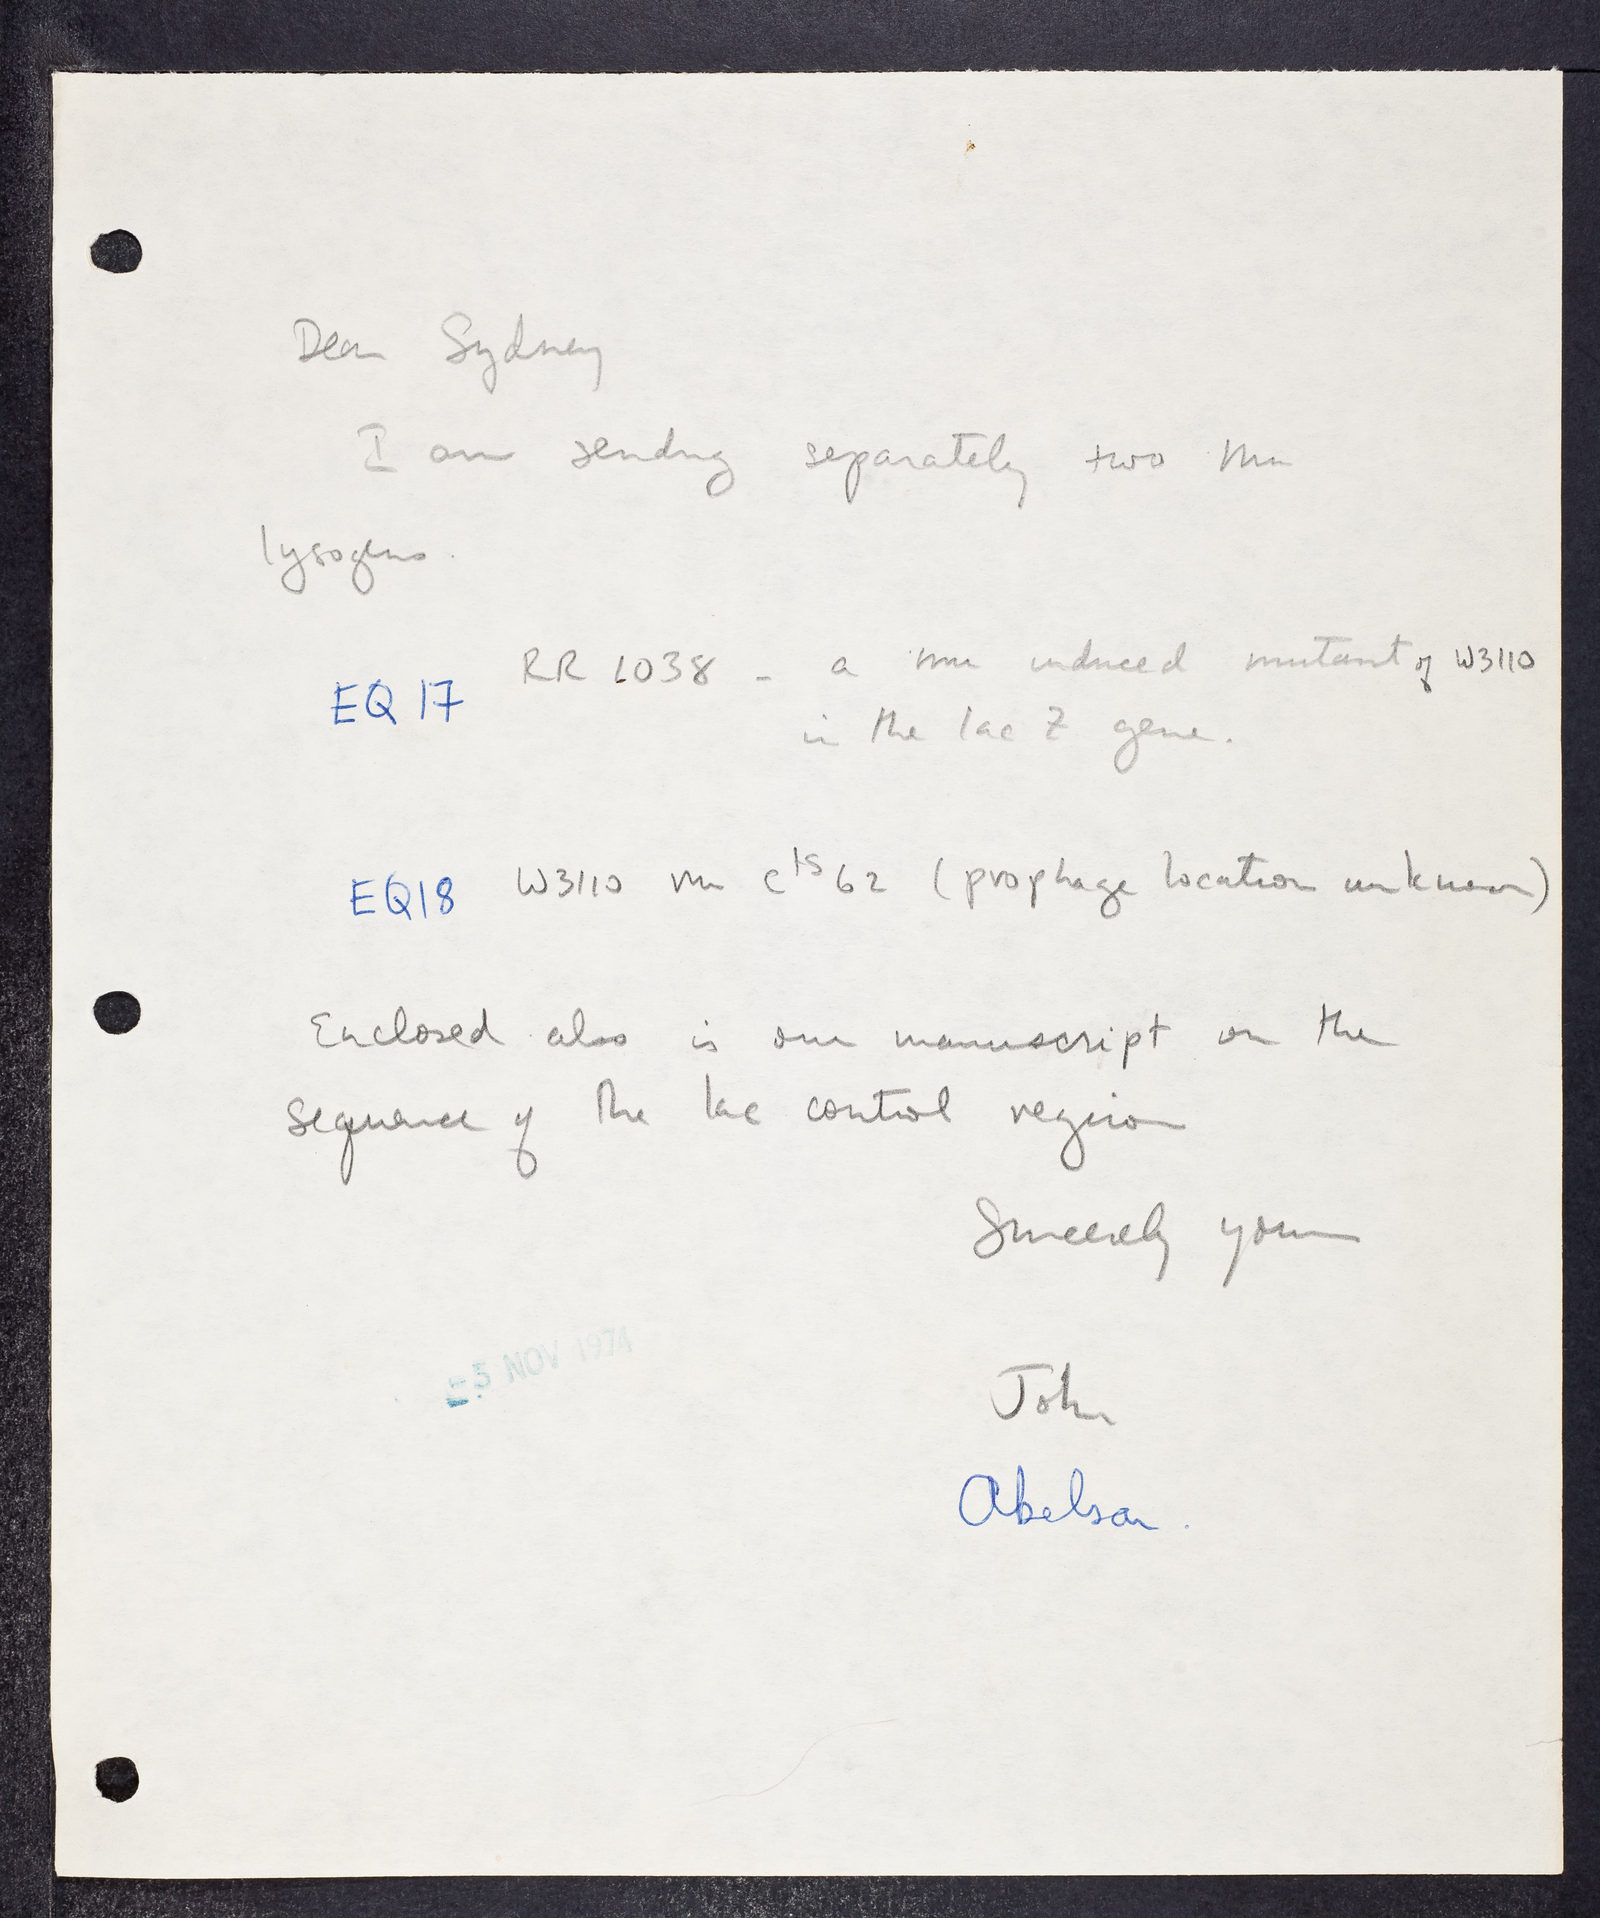 Dear Sydney
I am sending separately two Mu
lysogens.
EQ 17 RR 1038 - a mu induced mutant of W3110
in the lac Z gene.
EQ18 W3110 mu cts62 (prophage location unknown)
Enclosed also is our manuscript on the
sequence of the lac control region
Sincerely yours
5 NOV 1974
John
Abelson.